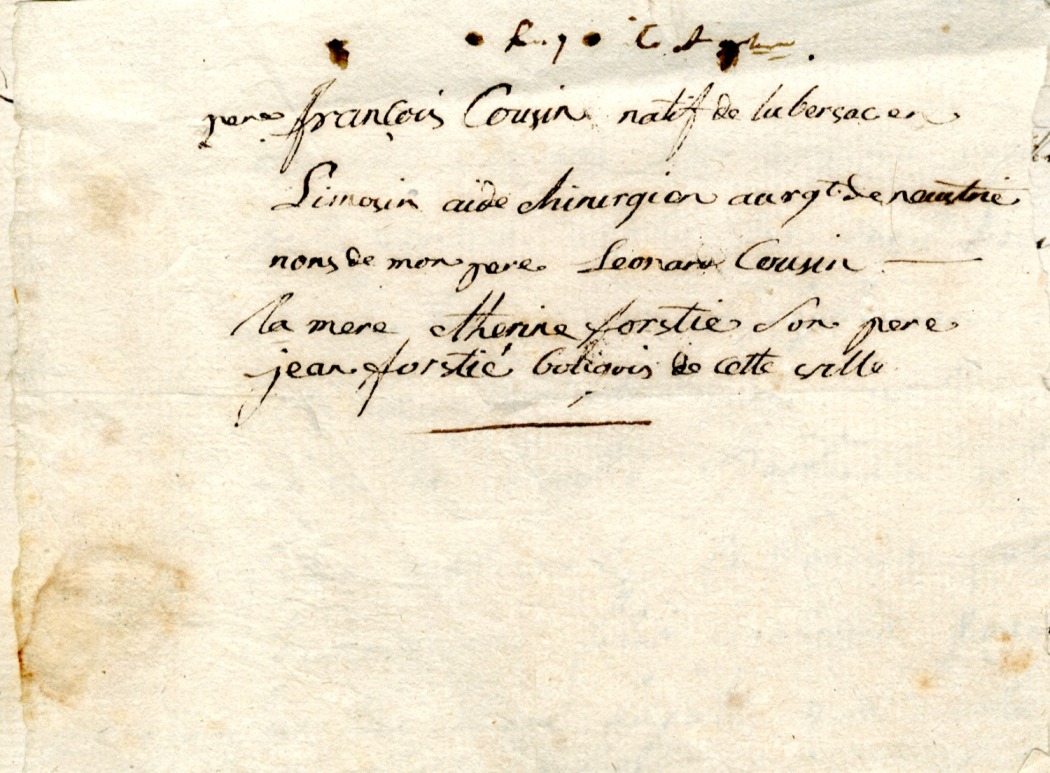 pere françois Cousin natif de lubersac en
Limosin aide chirurgien au rgt. de neustrie
noms de mon pere Leonard Cousin
la mere Etherine forstie son pere
jean forstié de cette ville